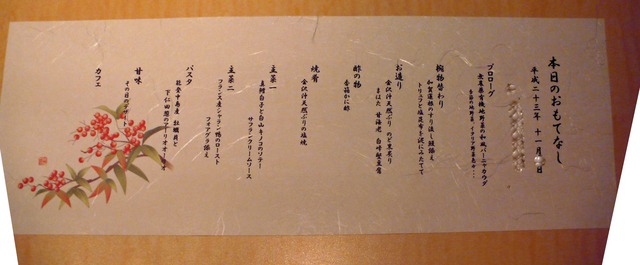 本日のおもてなし
平成二十三年 十一月 日
プロローグ
無農薬有機地野菜の和風バーニャカウダ
椀物替わり
加賀蓮根のすり流し 鮭添え
トリュフと塩昆布を泥にみたてて
お造り
金沢沖天然ぶり のど黒炙り
甘海老
酢の物
香箱かに酢
焼肴
金沢沖天然ぶりの塩焼
主菜一
真鱈白子と白山キノコのソテー
サフランクリームソース
主菜二
フランス産シャラン鴨のロースト
フォアグラ添え
パスタ
能登中島産 牡蠣貝と
下仁田葱のアーリオオーリオ
甘味
その日の
カフェ